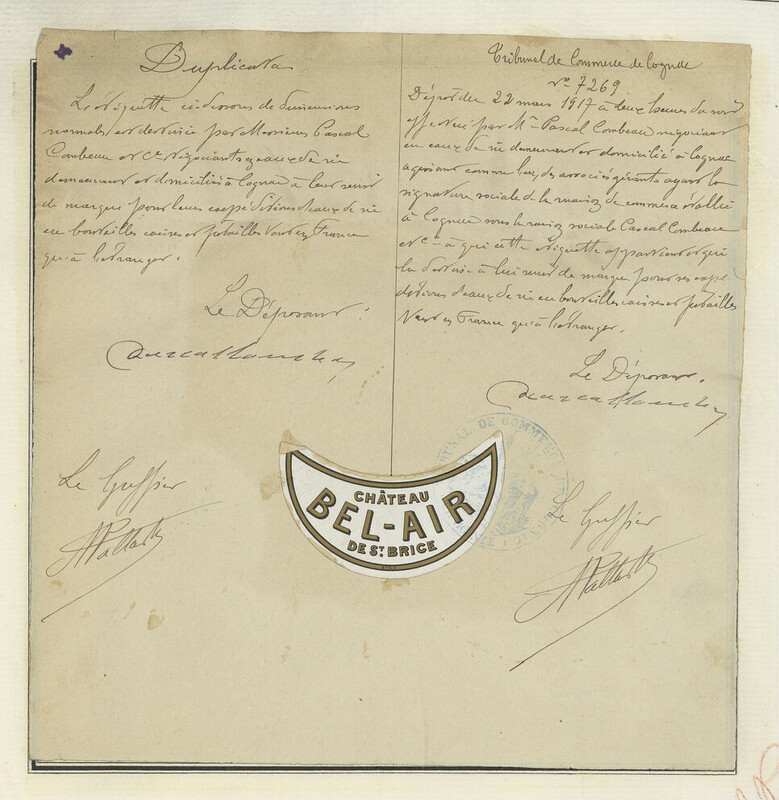 Duplicata
La vignette ci-dessous de dimensions
normales est destinée par Messieurs Pascal
Combeau et Cie négociants en eaux de vie
demeurant et domiciliés à Cognac à leur servir
de marque pour leurs expéditions d'eaux de vie
en bouteilles caisses et futailles tant en France
qu'à l'étranger.
Le Déposant.
Le Greffier
Tribunal de Commerce de Cognac
No 7269
Dépôt du 22 mars 1917 à deux heures du soir
effectué par Mr Pascal Combeau négociant
en eaux de vie demeurant et domicilié à Cognac
agissant comme l'un des associés gérants ayant la
signature sociale de la maison de commerce établie
à Cognac sous la raison sociale Pascal Combeau
et Cie à qui cette étiquette appartient et qui
la destine à lui servir de marque pour ses expé
ditions d'eaux de vie en bouteilles caisses et futailles
tant en France qu'à l'étranger.
Le Déposant.
Le Greffier
TRIBUNAL DE COMMERCE
CHÂTEAU
BEL-AIR
DE ST BRICE